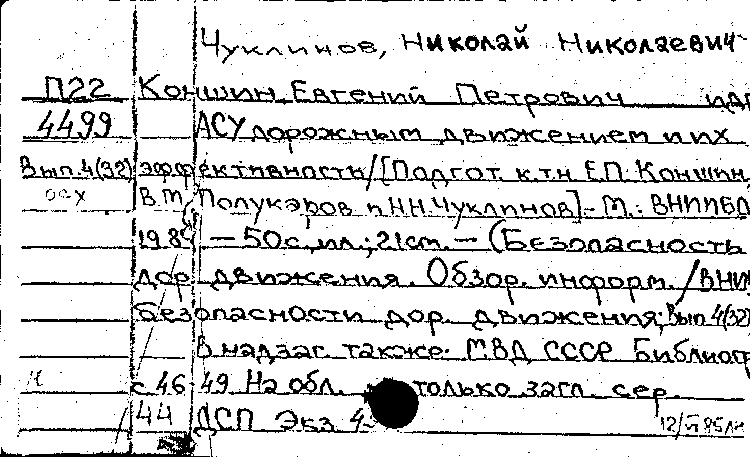 Чуклинов, Николай Николаевич
П22 Коншин, Евгений Петрович и др
4499 АСУ дорожным движением и их
Вып. 4(32) эффективность/[Подгот. к.т.н. Е.П. Коншин,
осх В.М. Полукаров и Н.Н. Чуклинов]. – М.: ВНИИБД
1984 – 50с., ил.; 21см. – (Безопасность
дор. движения. Обзор. информ. / ВНИИ
безопасности дор. движения; Вып 4(32)
В надзаг. также: МВД СССР Библиогр
с 46-49 На обл. только загл. сер.
44 ДСП Экз 4
12/VI 85